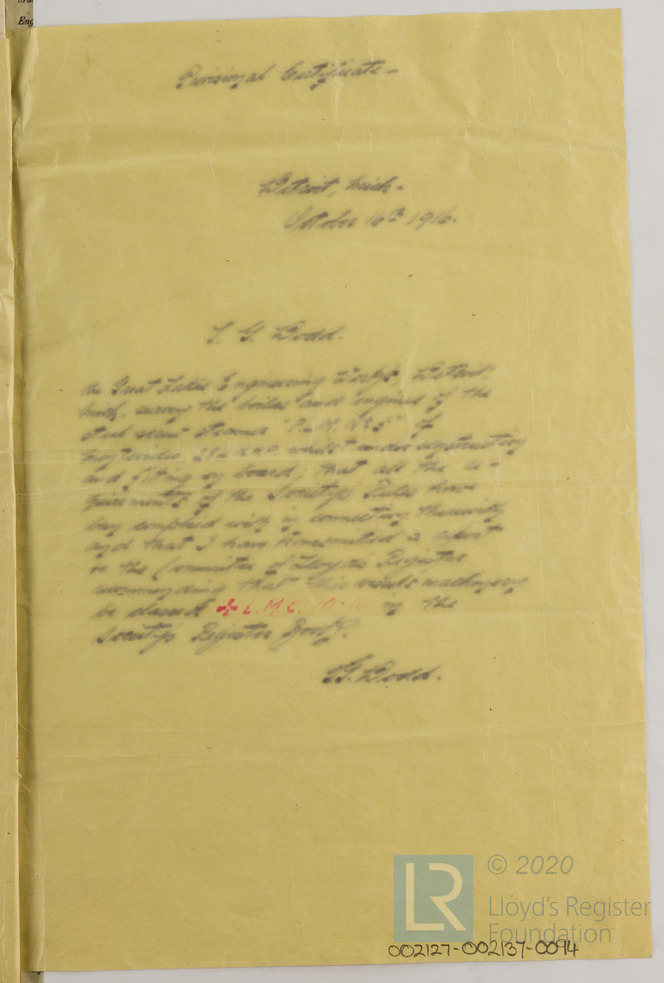 Eng
Provisional Certificate -
Detroit, Mich.
October 16th 1916.
T. G. Dodd.
the Great Lakes Engineering Works, Detroit,
Mich. survey the boiler and engines of the
steel screw steamer of
whilst under construction
and fitting on board, that all the re-
quirements of the Society's Rules have
been complied with in connection therewith
and that I have transmitted a report
to the Committee of Lloyd's Register
recommending that this vessel's machinery
be classed ✠ L.M.C. 10-16 in the
Society's Register Book.
T.G. Dodd.
LR
© 2020
Lloyd's Register
Foundation
002127-002137-0094